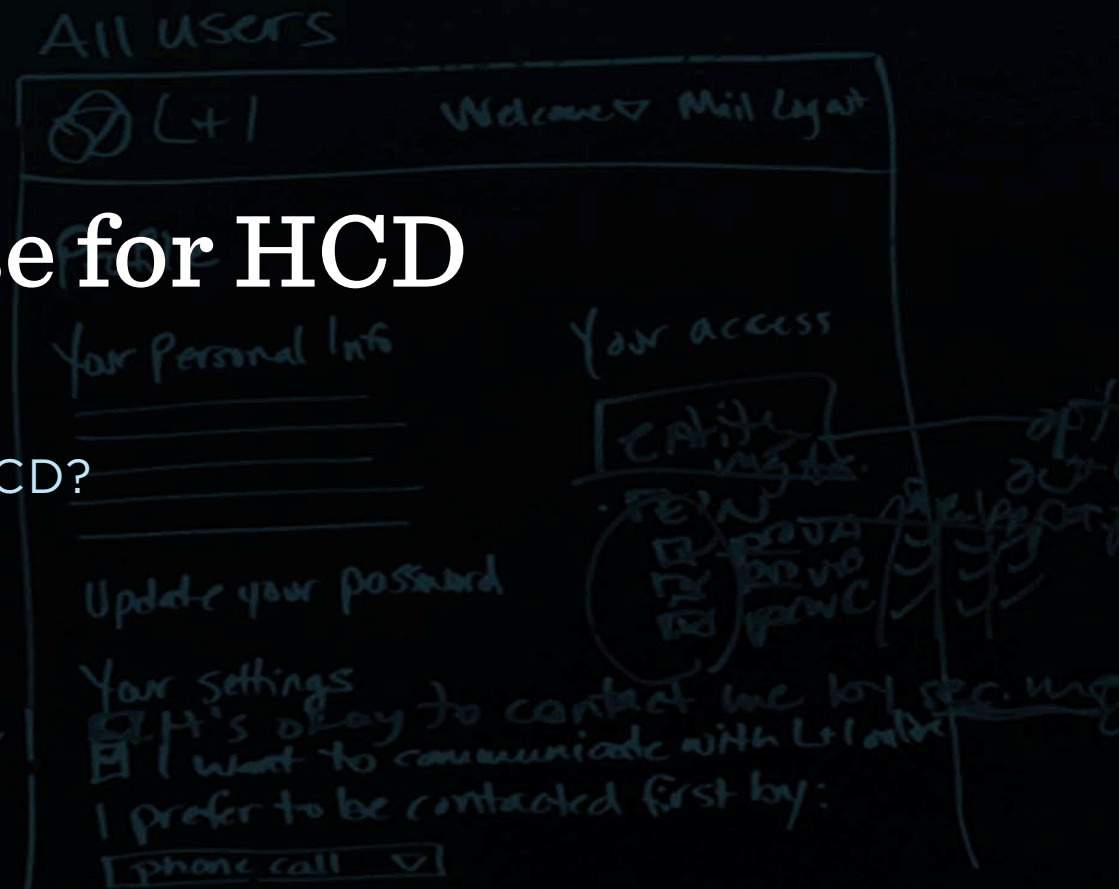 All users
L+I Welcome Mail Logout
e for HCD
Your Personal Info
Your access
Entity
CD?
Update your password
Your settings
It's okay to contact me by sec. msg
I want to communicate with L+I online
I prefer to be contacted first by:
phone call